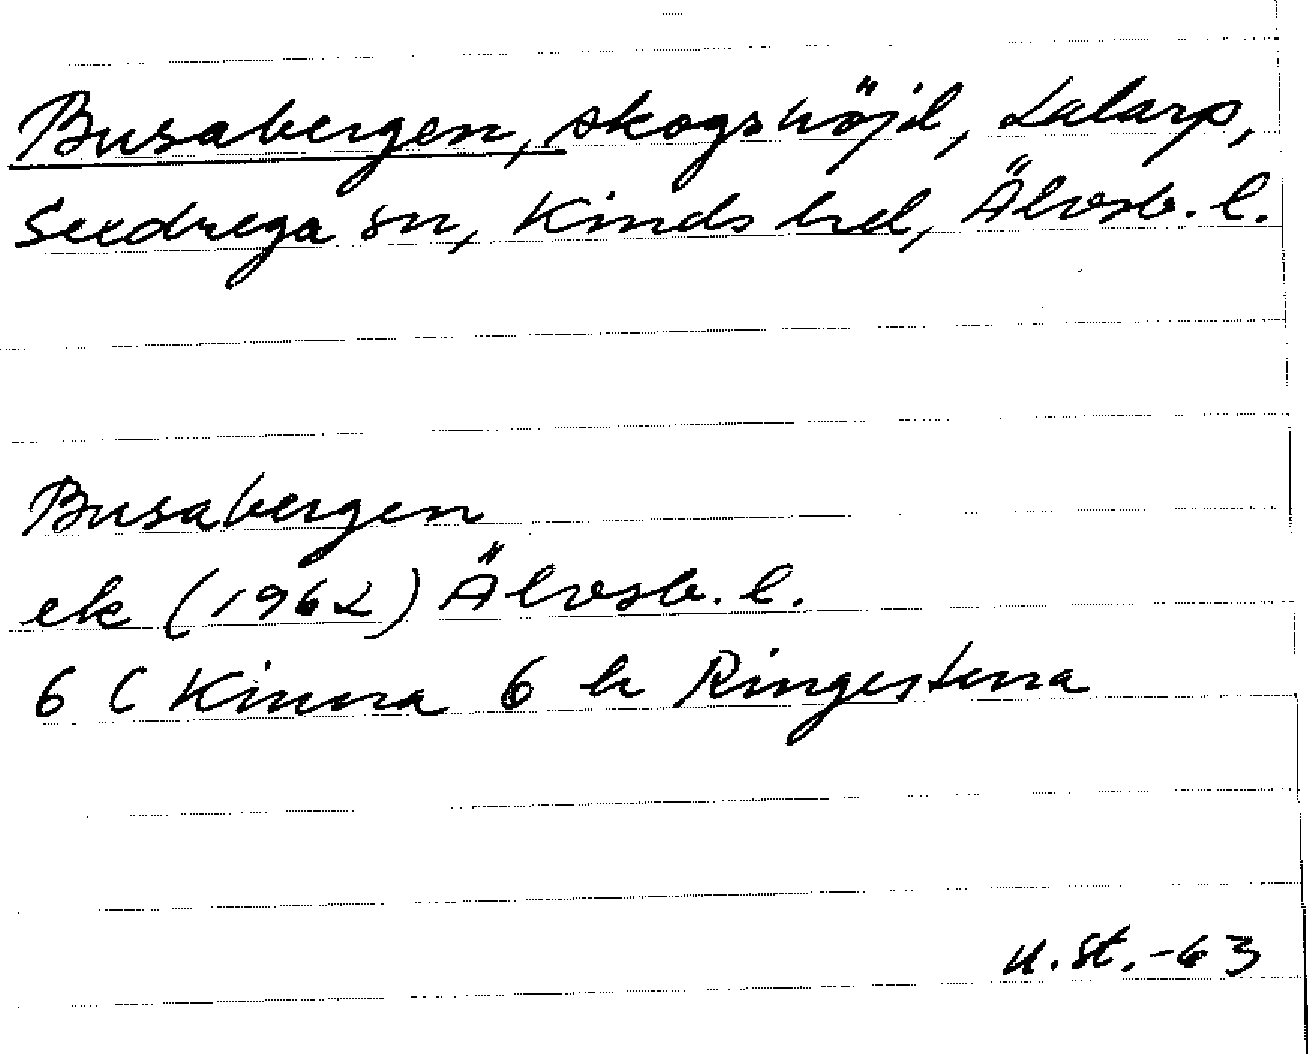 Busabergen, skogshöjd, Lalarp,
Seedrega sn, Kinds hd, Älvsb. l.
Busabergen
ek (1962) Älvsb. l.
6 C Kinna 6 h Ringestena
u. St. -63